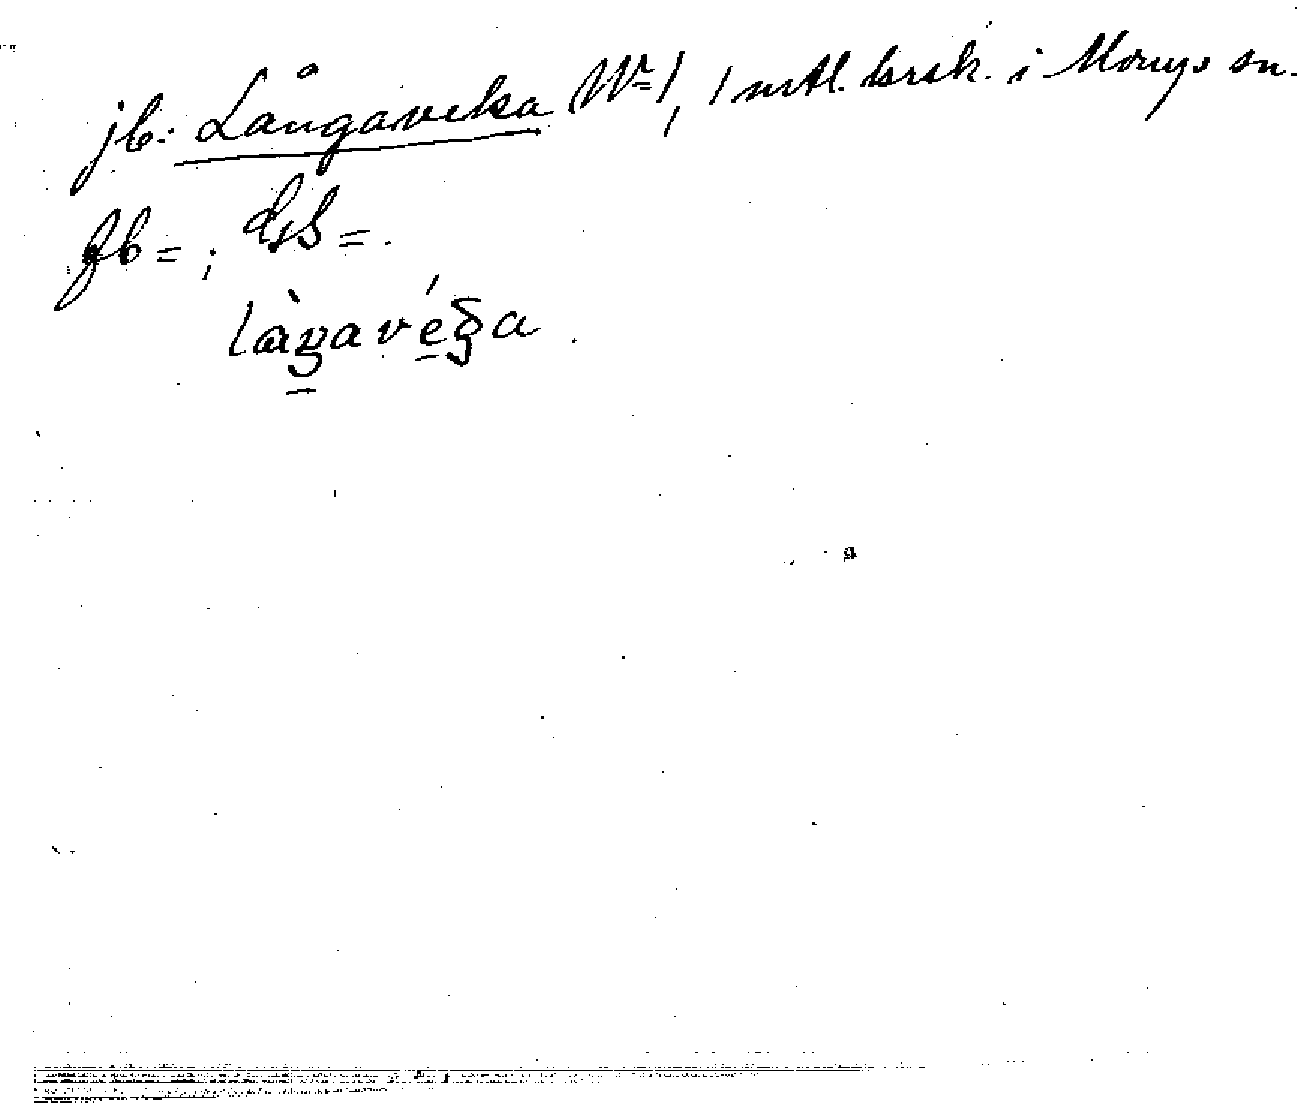 jb: Långaveka Nr 1, 1 mtl. krsk. i Morups sn.
fb = ; GS = .
làgavéga